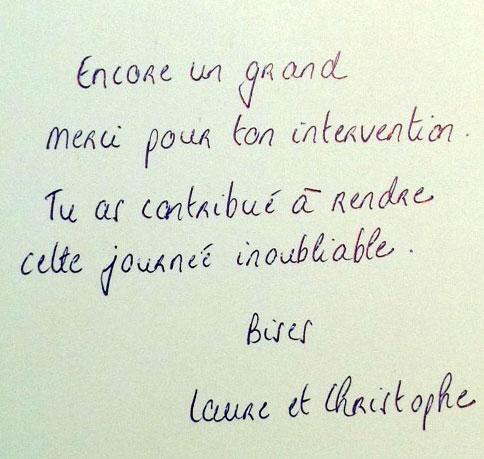 Encore un grand
merci pour ton intervention.
Tu as contribué à rendre
cette journée inoubliable.
Bises
Laure et Christophe